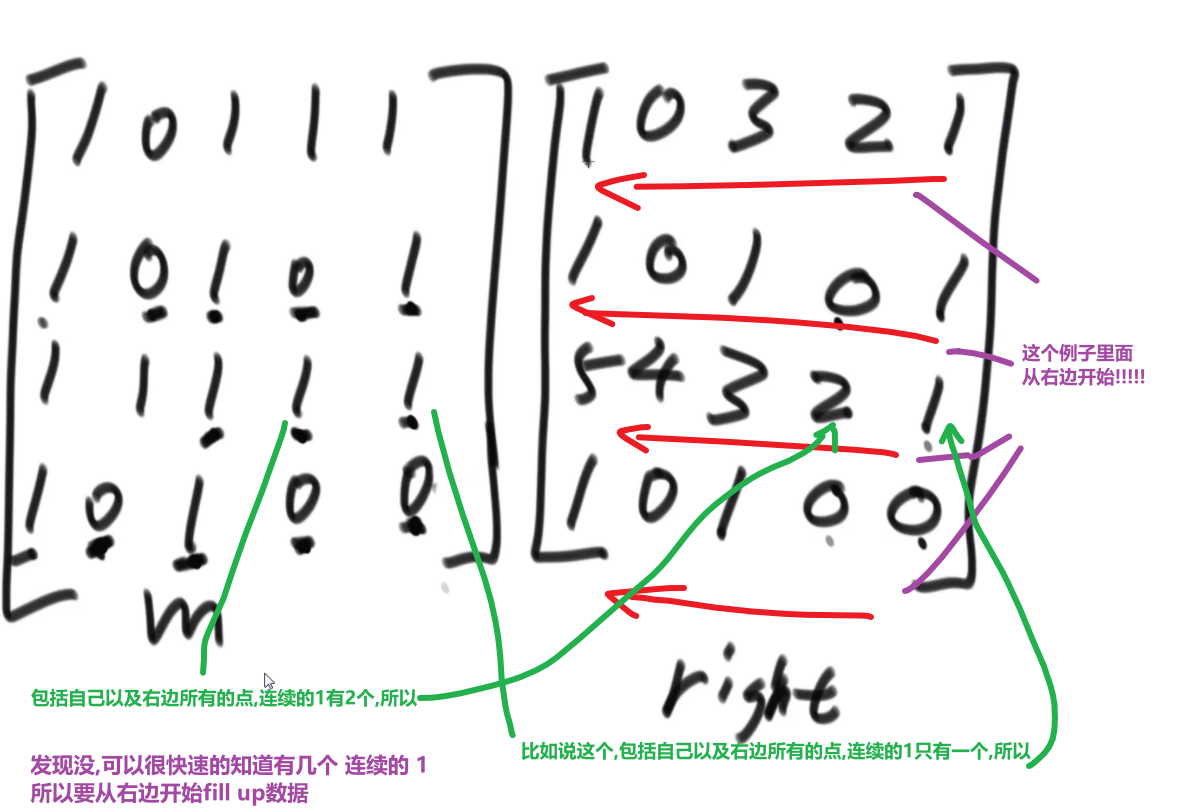 1 0 1 1 1
1 0 1 0 1
1 1 1 1 1
1 0 1 0 0
m
1 0 3 2 1
1 0 1 0 1
5 4 3 2 1
1 0 1 0 0
right
这个例子里面
从右边开始!!!!!
包括自己以及右边所有的点,连续的1有2个,所以
比如说这个,包括自己以及右边所有的点,连续的1只有一个,所以
发现没,可以很快速的知道有几个 连续的 1
所以要从右边开始fill up数据